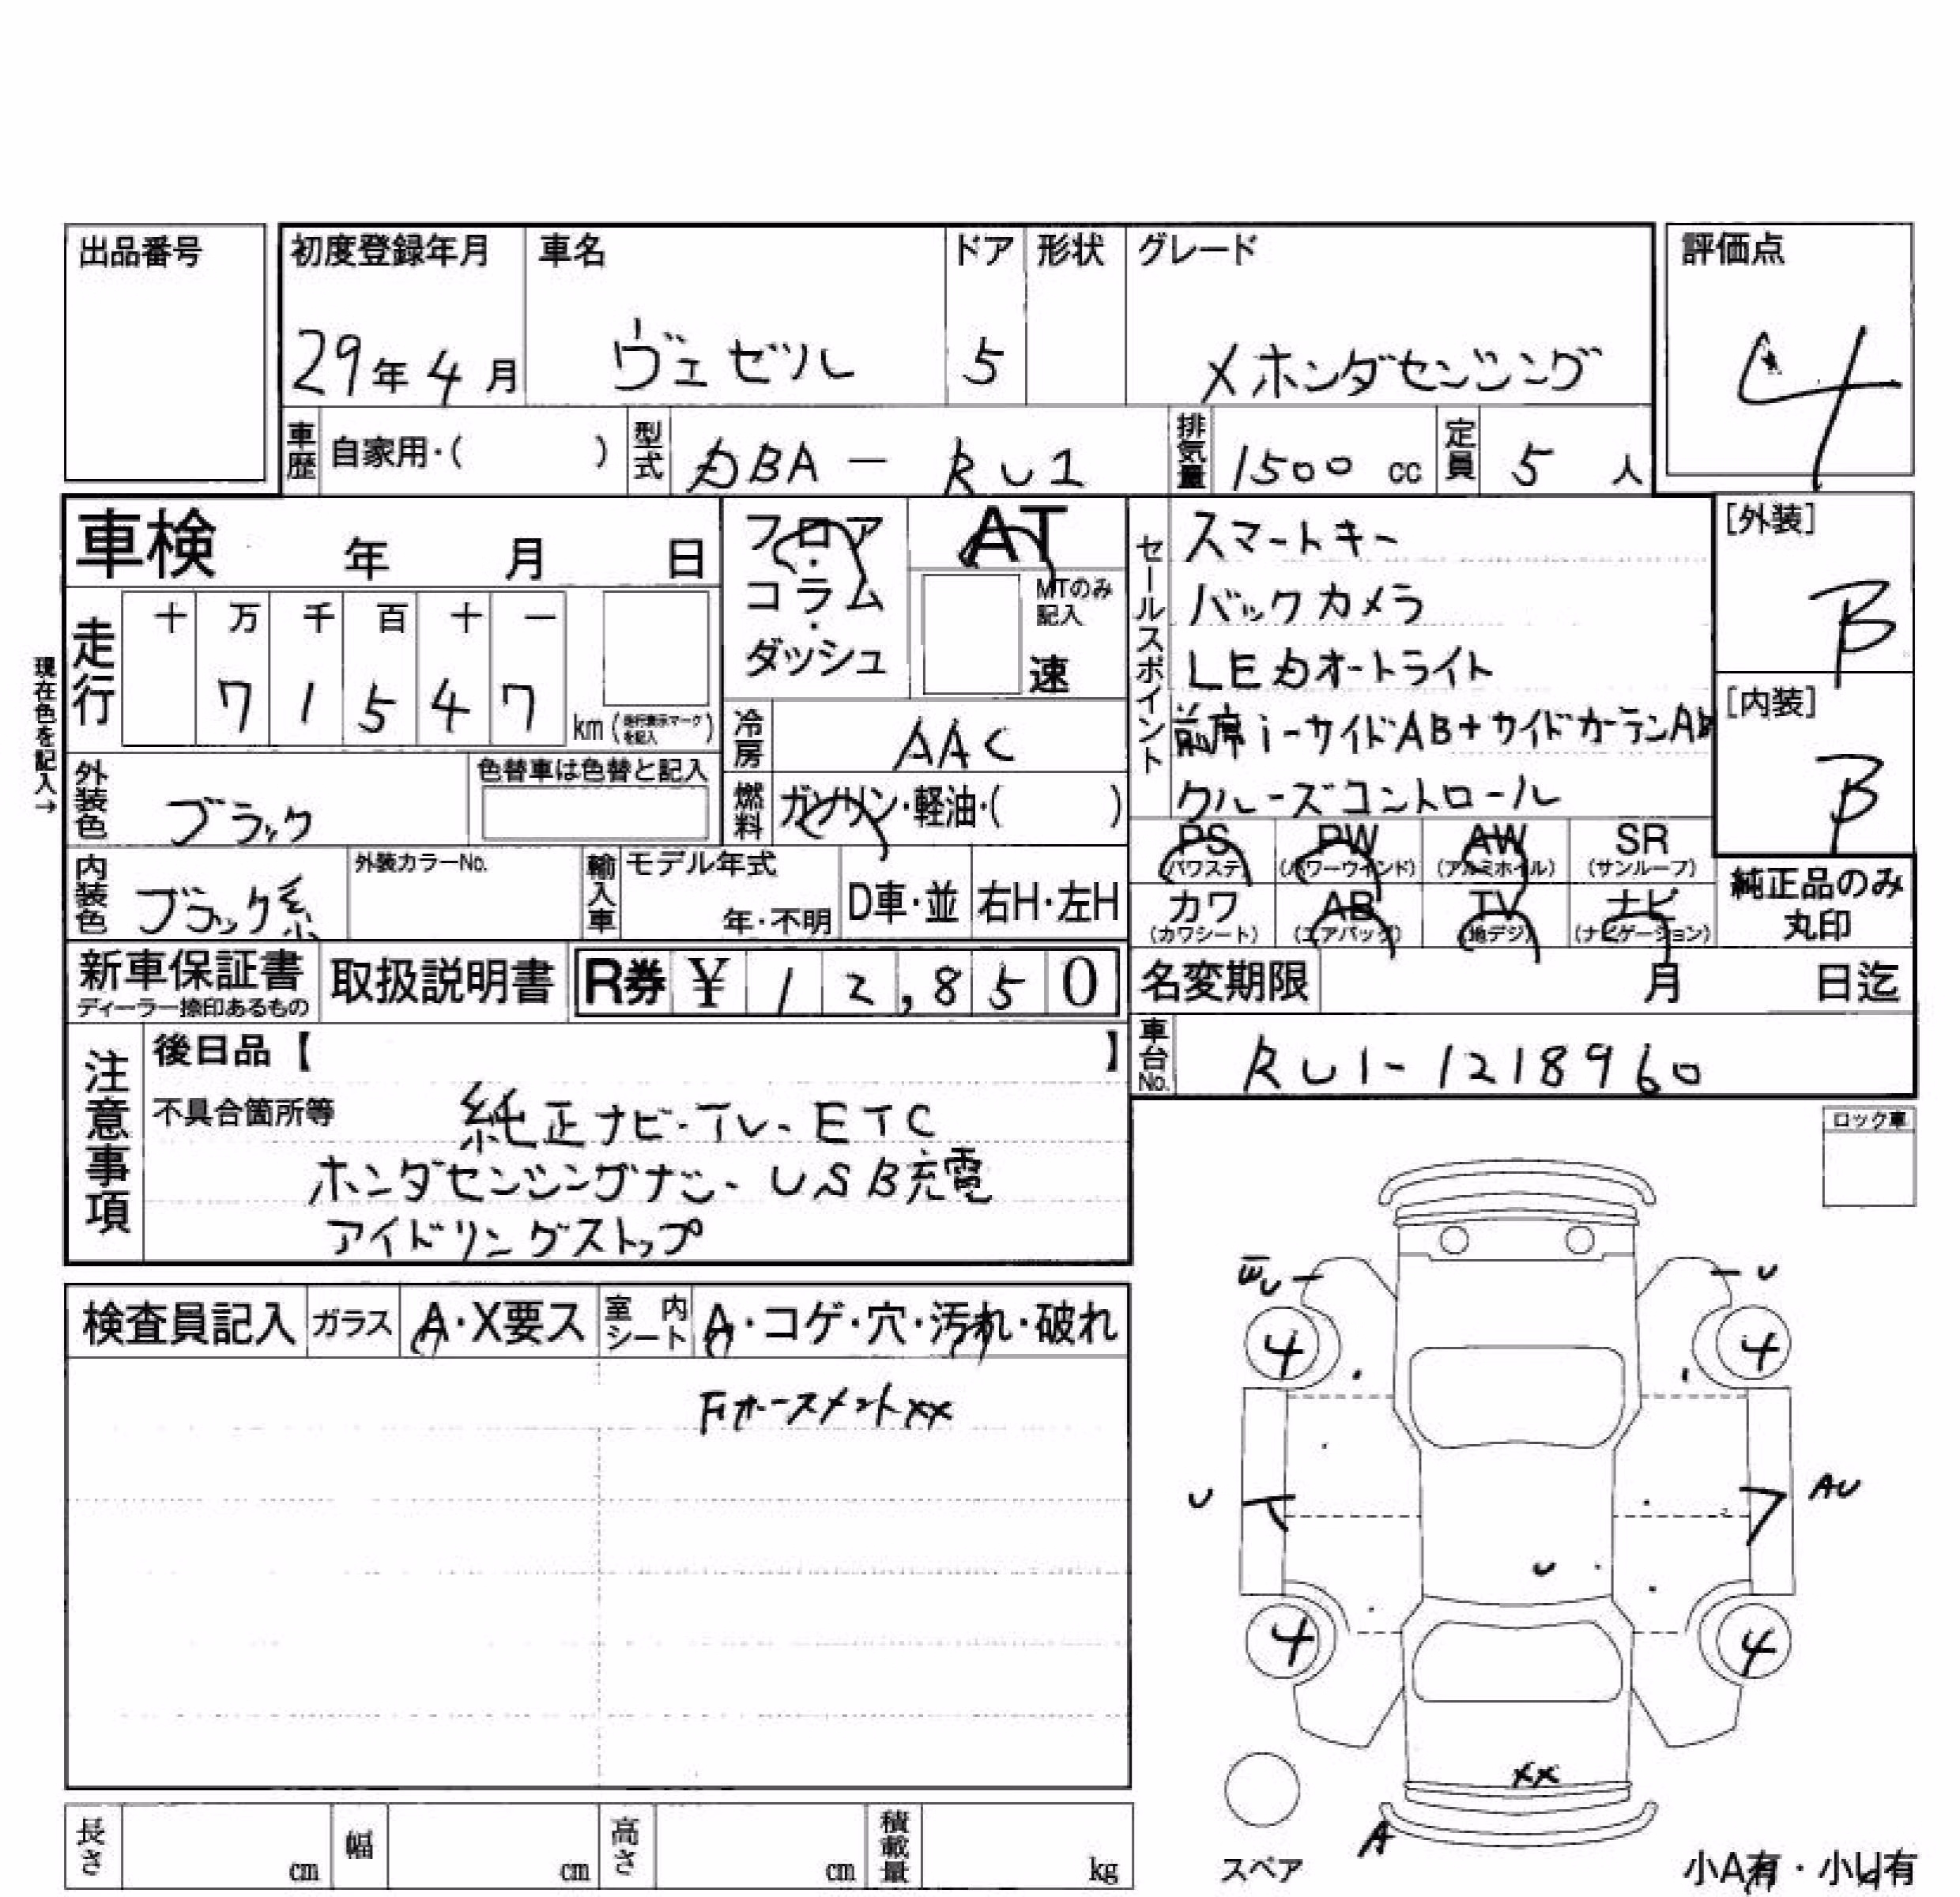 出品番号
初度登録年月 車名 ドア 形状 グレード 評価点
29年 4月 ヴェゼル 5 Xホンダセンシング 4
車歴 自家用・( ) 型式 DBA - RU1 排気量 1500 cc 定員 5 人
車検 年 月 日
フロア・コラム・ダッシュ
AT
MTのみ記入
速
セールスポイント
スマートキー
バックカメラ
LEDオートライト
前席i-サイドAB+サイドカーテンAB
クルーズコントロール
[外装]
B
[内装]
B
現在色を記入→
走行 十 万 千 百 十 一
7 1 5 4 7 km (走行表示マークを記入)
冷房 AAC
燃料 ガソリン・軽油・( )
外装色 ブラック 色替車は色替と記入
内装色 ブラック系 外装カラーNo. 輸入車 モデル年式 年・不明 D車・並 右H・左H
PS (パワステ) PW (パワーウインド) AW (アルミホイル) SR (サンルーフ)
カワ (カワシート) AB (エアバッグ) TV (地デジ) ナビ (ナビゲーション)
純正品のみ丸印
新車保証書 ディーラー捺印あるもの 取扱説明書 R券 ¥ 1 2,8 5 0
名変期限 月 日迄
車台No. RU1-1218960
注意事項
後日品【 】
不具合箇所等 純正ナビ・TV・ETC
ホンダセンシングナシ・USB充電
アイドリングストップ
ロック車
検査員記入 ガラス A・X要ス 室内シート A・コゲ・穴・汚れ・破れ
XX
U U
4 4
U AU
U
4 4
XX
A
スペア
小A有・小U有
長さ cm 幅 cm 高さ cm 積載量 kg